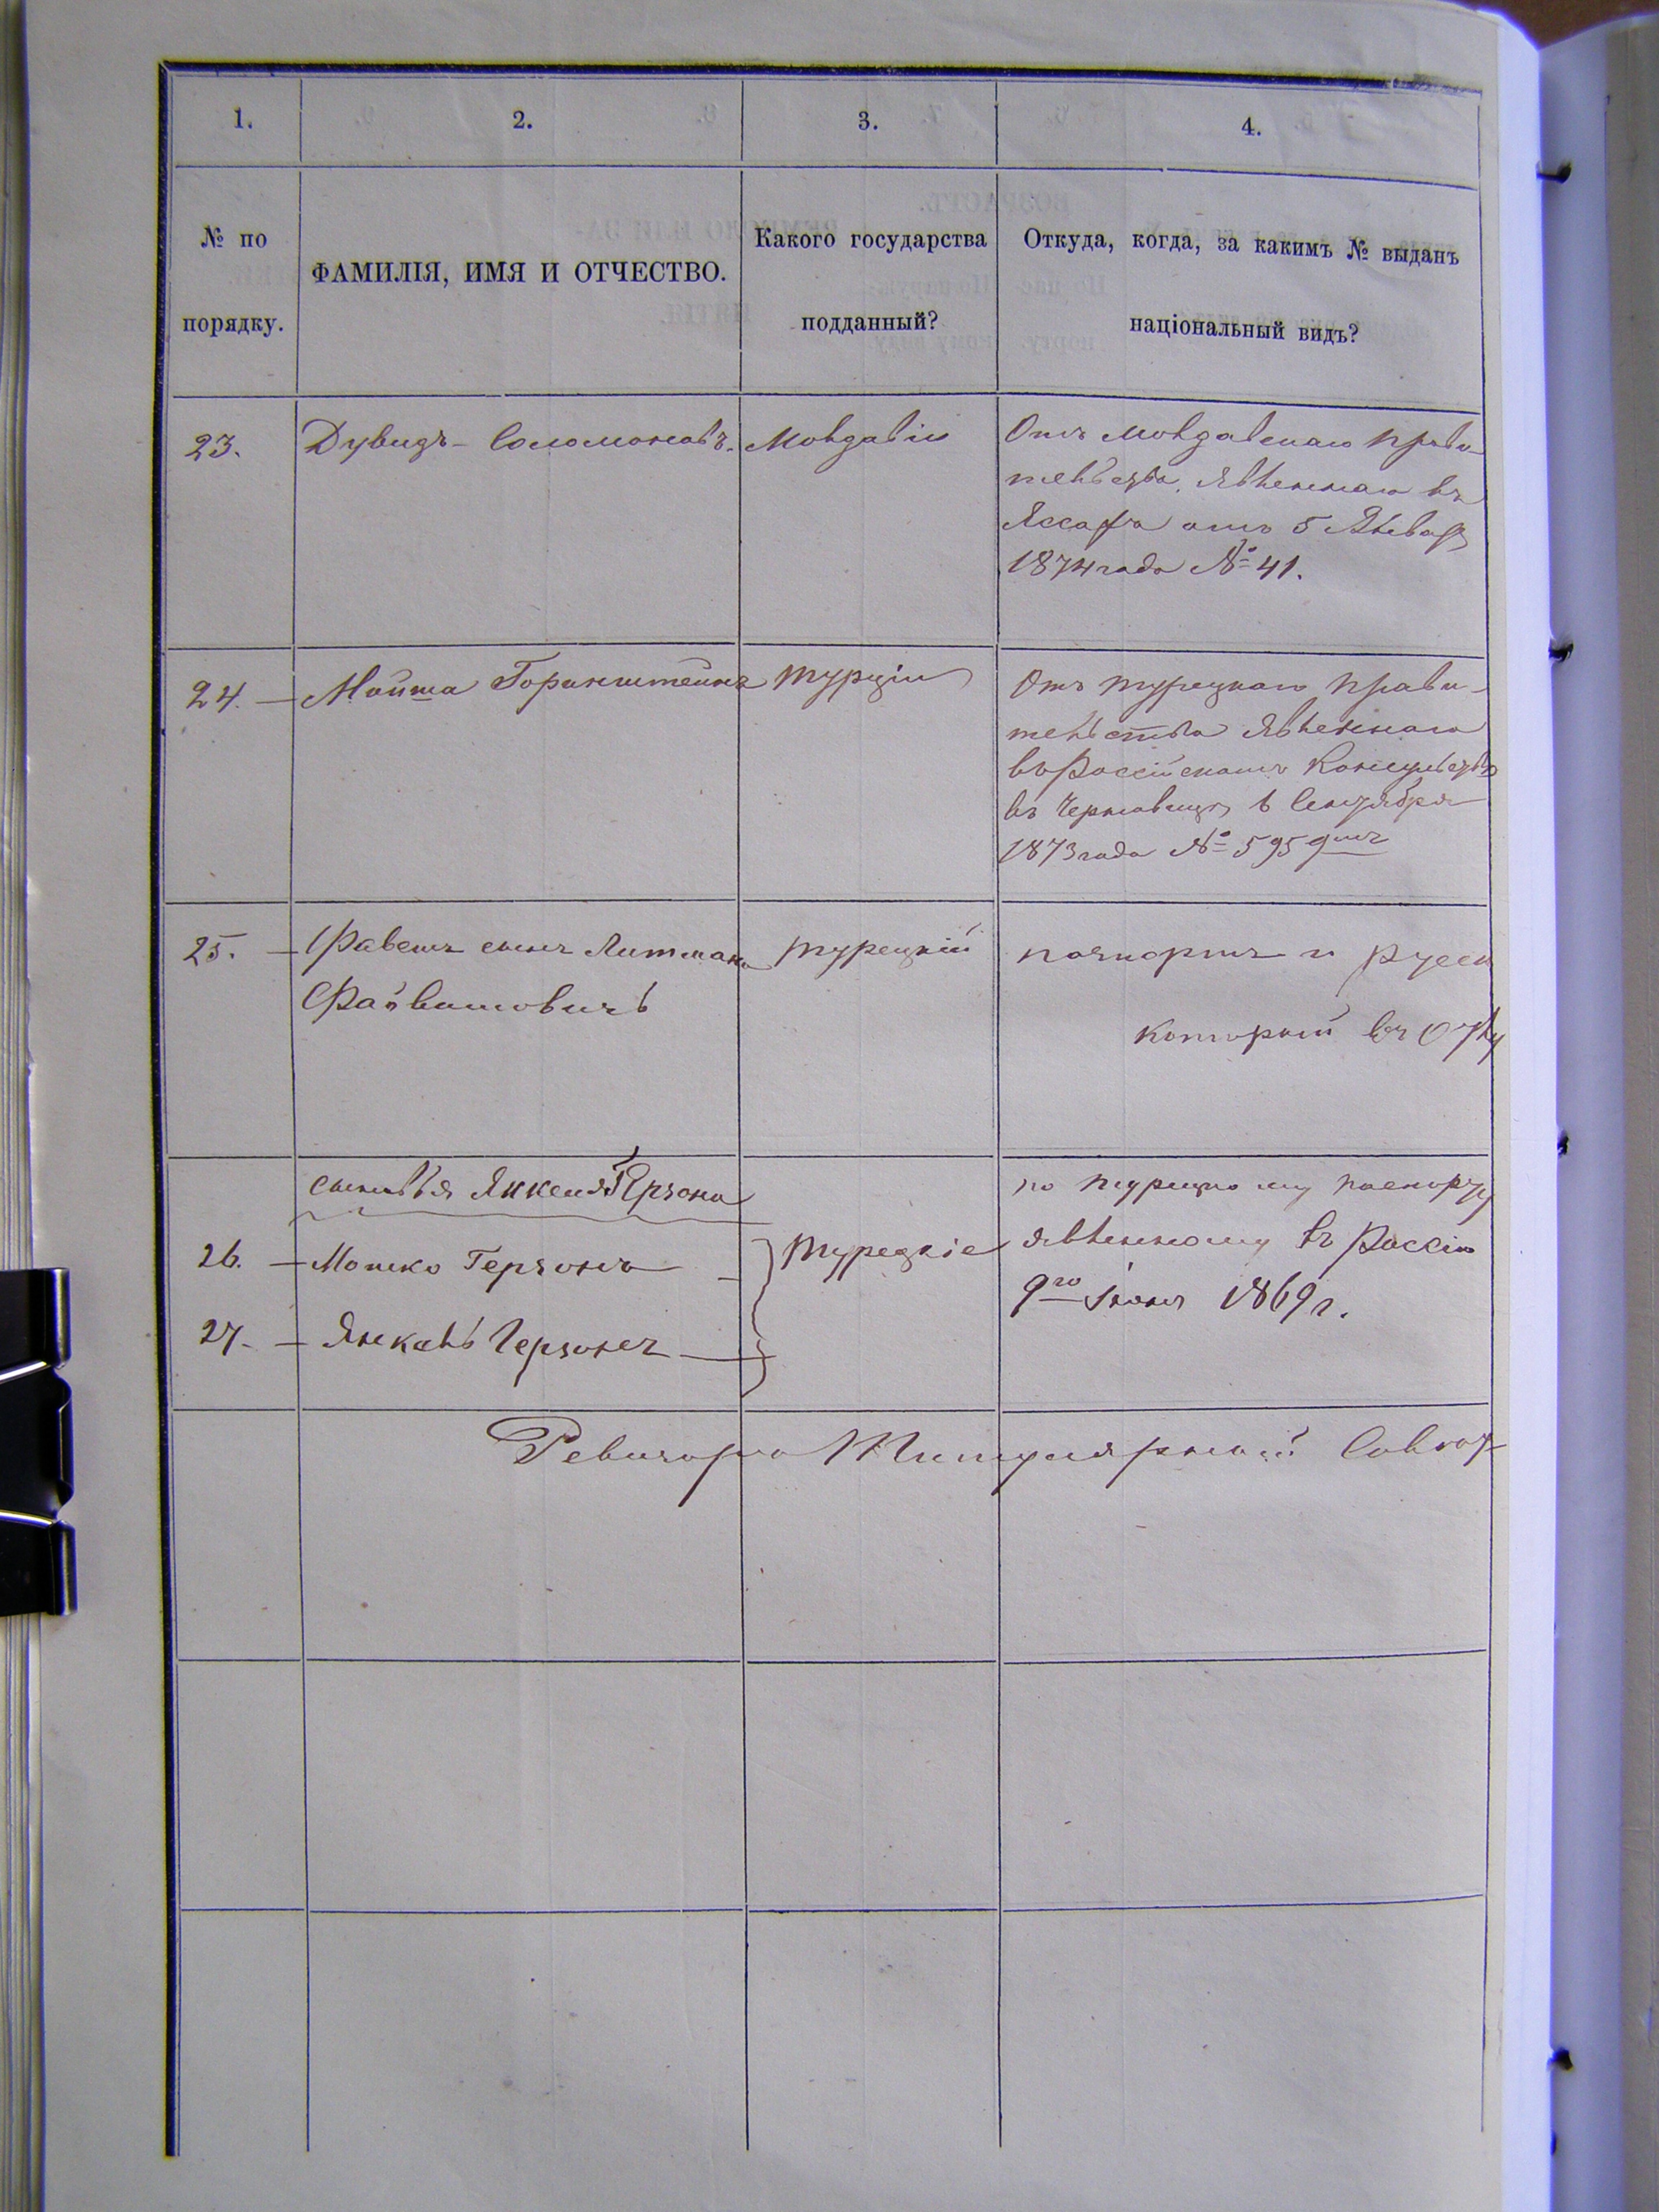 1. 2. 3. 4.
№ по порядку.
ФАМИЛІЯ, ИМЯ И ОТЧЕСТВО.
Какого государства подданный?
Откуда, когда, за какимъ № выданъ
національный видъ?
23. Дувидъ - Соломоновъ. Молдавіи
Отъ Молдавскаго прави-
тельства, явленнаго въ
Яссахъ отъ 5 Января
1874 года № 41.
24. — Мойша Горинштейнъ Турціи
Отъ турецкаго прави-
тельства явленнаго
въ Россійскомъ Консульствѣ
въ Черновицѣ 6 Сентября
1873 года № 595
25. — Фавешъ сынъ Литмана турецкій
Файвишовичъ
паспортъ и русск
который въ
сыновья Янкеля Герзона
26. — Мошко Герзонъ —
27. — Янкель Герзонъ —
турецкіе
по турецкому паспорту
явленному въ Россіи
9го Іюня 1869 г.
Ревизоръ Титулярный Совѣт